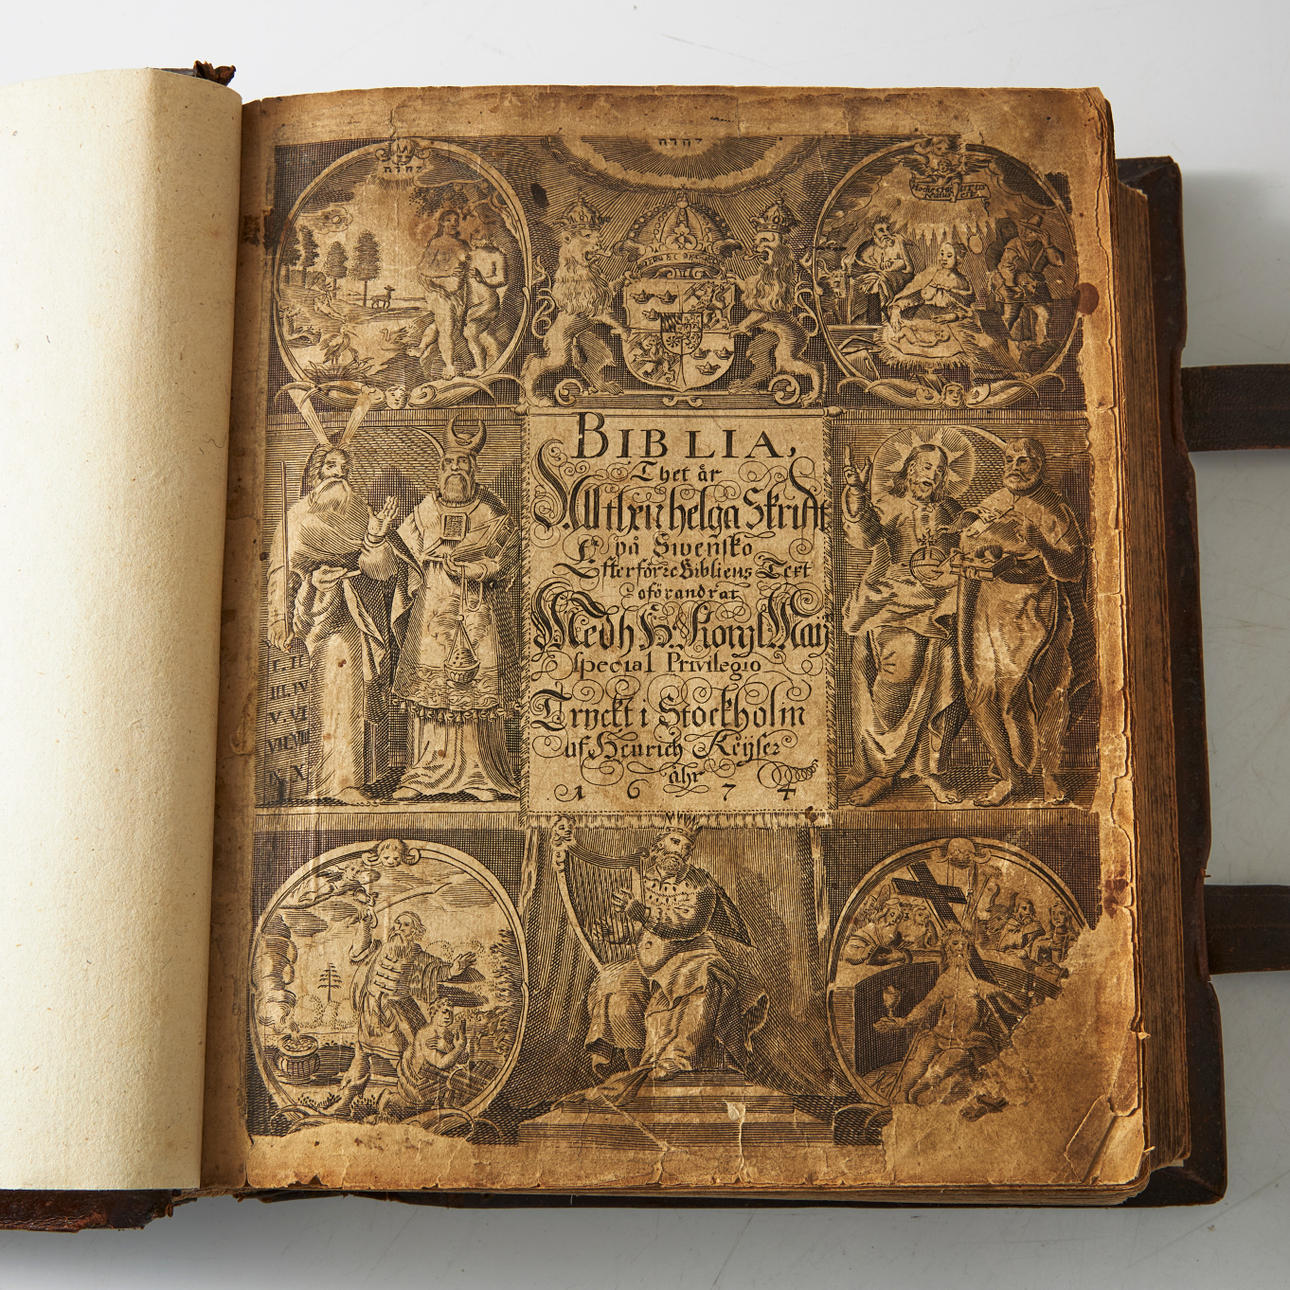 יהוה
יהוה
BIBLIA,
Thet är
All then helga Skrifft
på Swensko
Effter förre Bibliens Text
oförandrat
Medh H. Kongl May
special Privilegio
Tryckt i Stockholm
af Henrich Keyser
åhr
1 6 7 4
I. II
III. IV
V. VI
VII. VIII
IX X